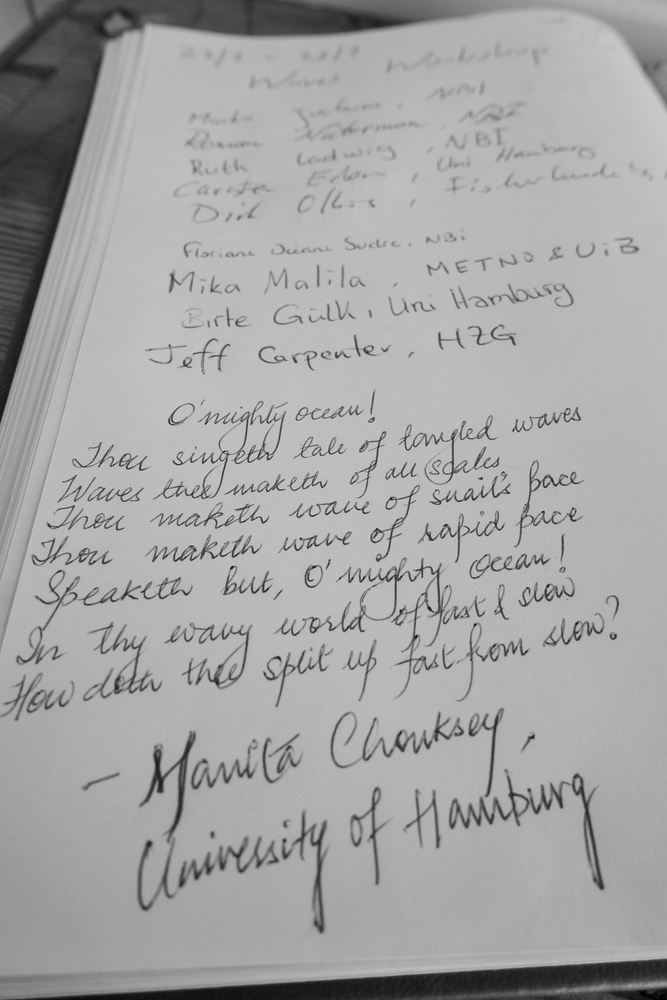 Waves Workshop
NBI
NBI
Ruth Ladwig, NBI
Carsten Eden, Uni Hamburg
Dirk Olbers,
Floriane Sudre, NBi
Mika Malila, METNO & UiB
Birte Gülk, Uni Hamburg
Jeff Carpenter, HZG
O'mighty ocean!
Thou singeth tale of tangled waves
Waves thee maketh of all scales
Thou maketh wave of snail's pace
Thou maketh wave of rapid pace
Speaketh but, O'mighty ocean!
In thy wavy world of fast & slow
How doth thee split up fast from slow?
– Manita Chouksey,
University of Hamburg